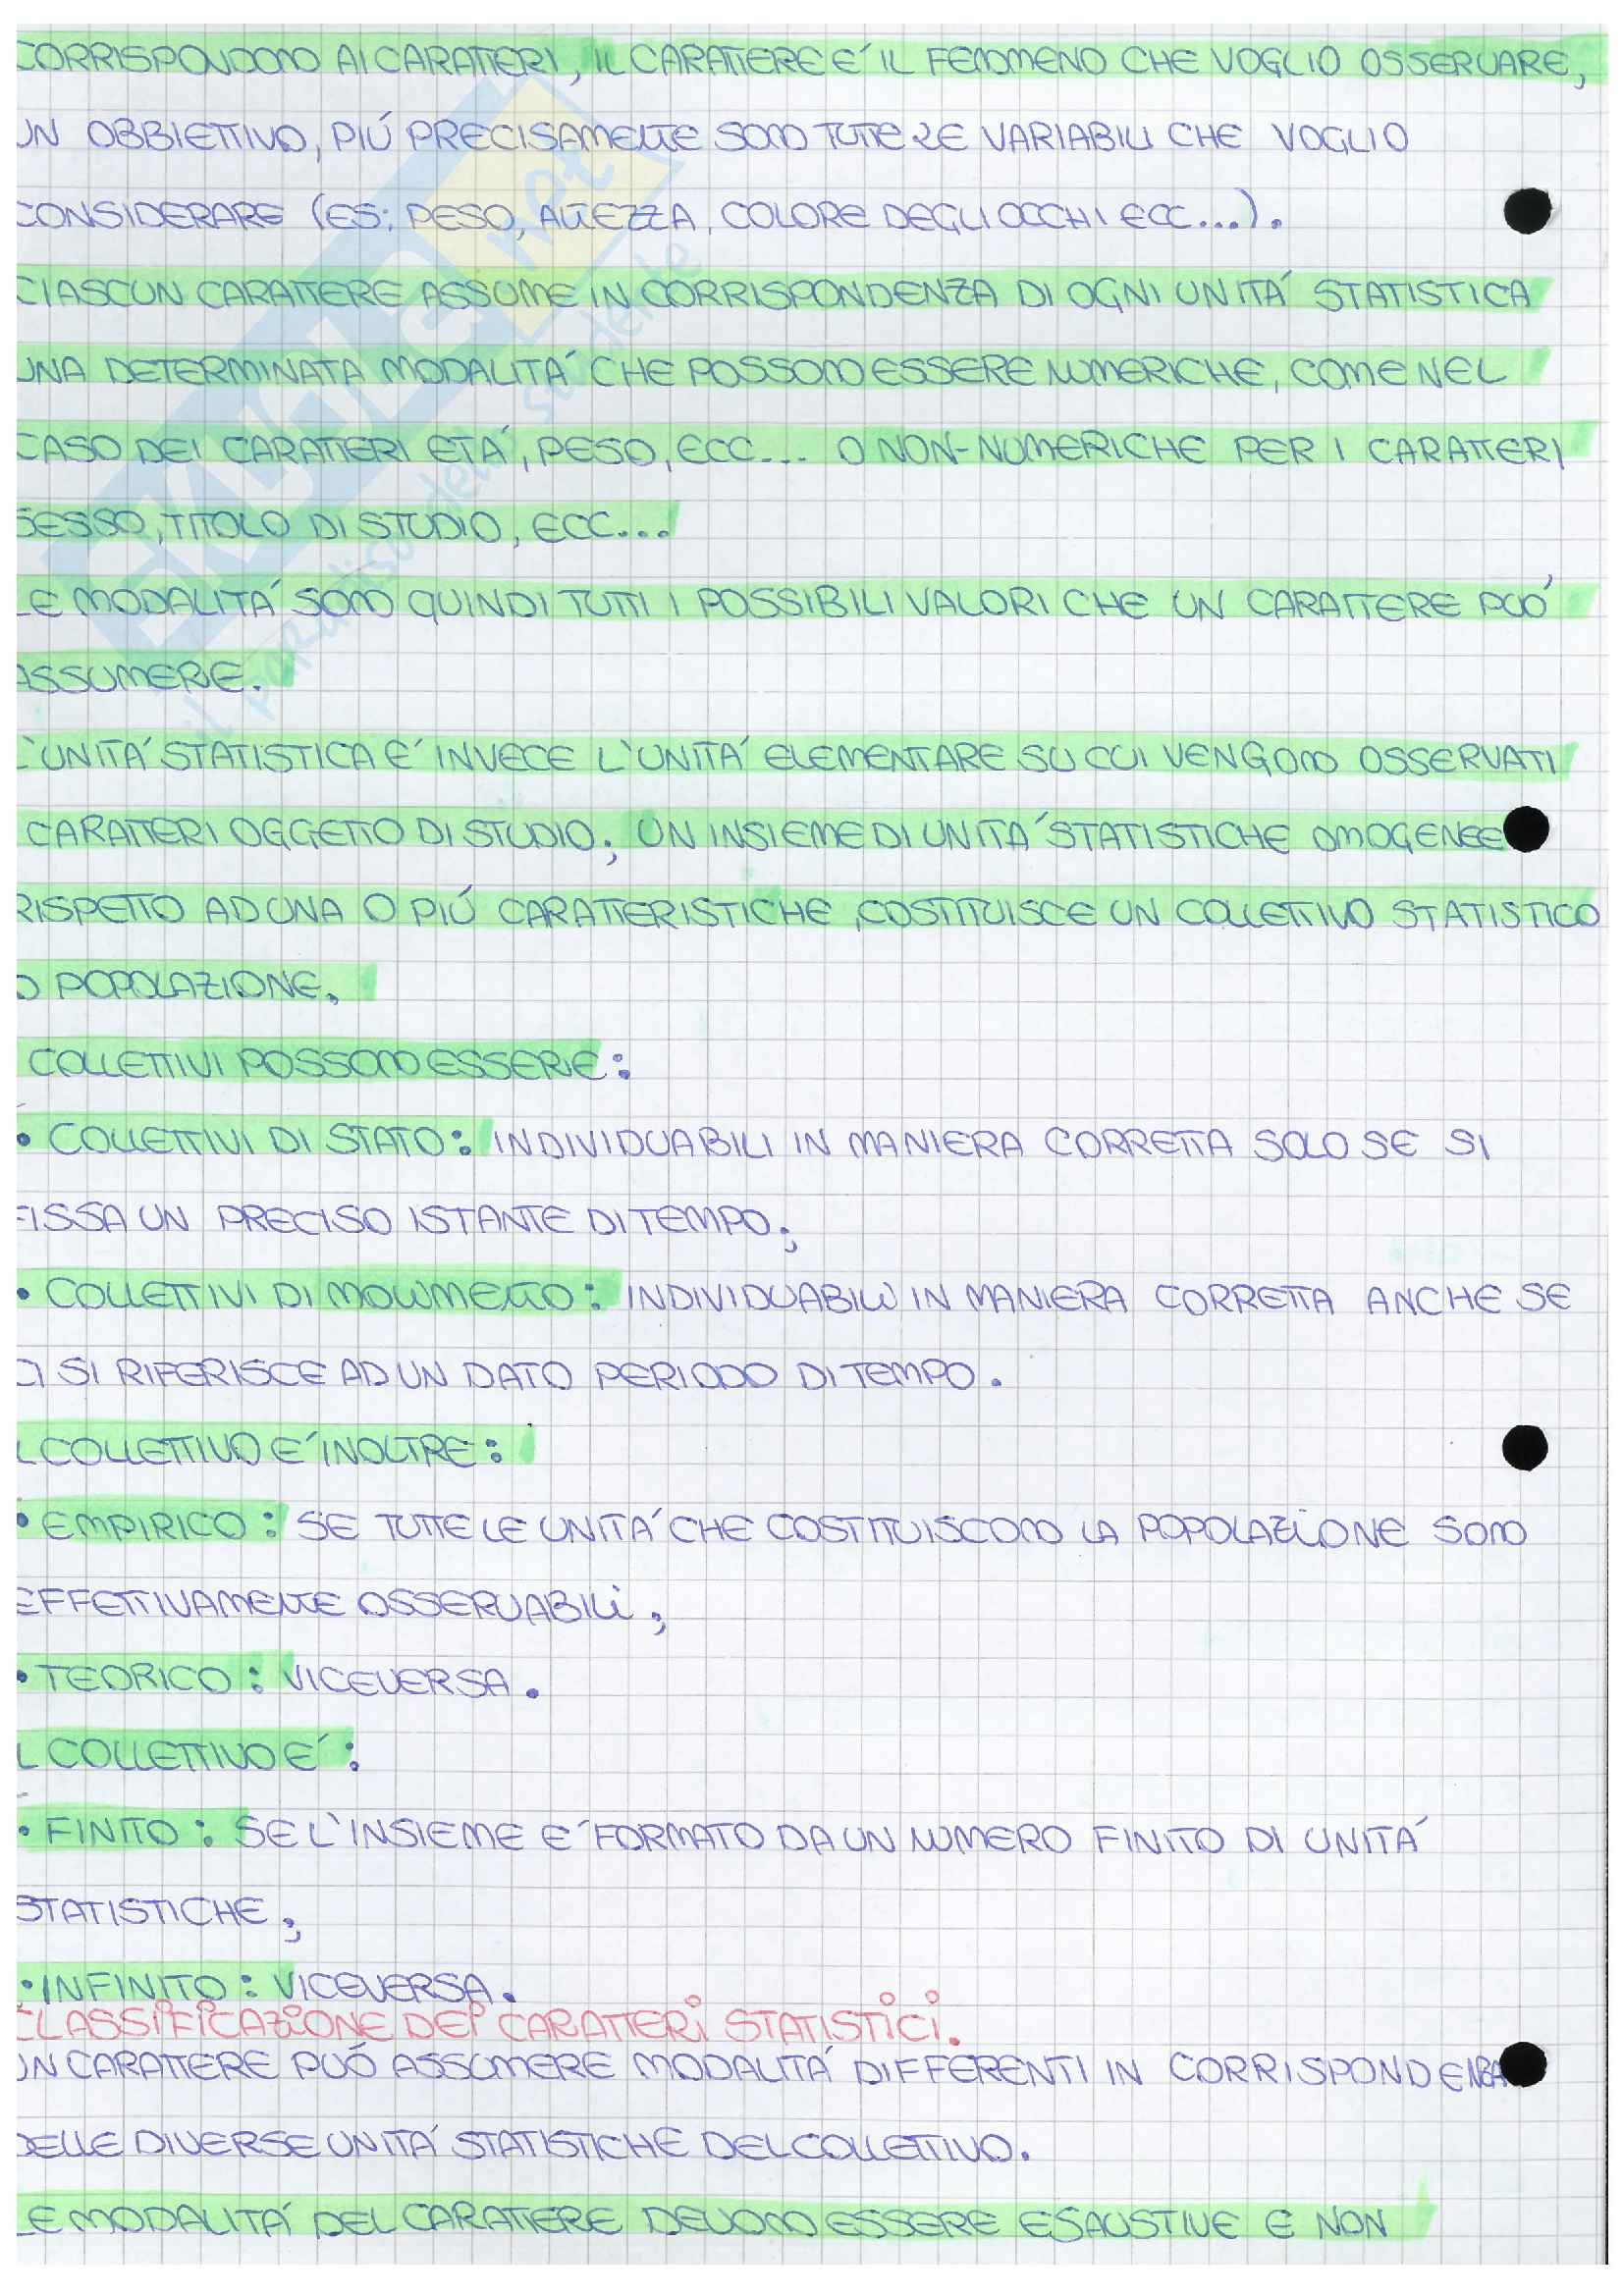 CORRISPONDONO AI CARATTERI, IL CARATTERE E' IL FENOMENO CHE VOGLIO OSSERVARE,
UN OBBIETTIVO, PIÚ PRECISAMENTE SONO TUTTE LE VARIABILI CHE VOGLIO
CONSIDERARE (ES: PESO, ALTEZZA, COLORE DEGLI OCCHI ECC...).
CIASCUN CARATTERE ASSUME IN CORRISPONDENZA DI OGNI UNITA' STATISTICA
UNA DETERMINATA MODALITA' CHE POSSONO ESSERE NUMERICHE, COME NEL
CASO DEI CARATTERI ETA', PESO, ECC... O NON-NUMERICHE PER I CARATTERI
SESSO, TITOLO DI STUDIO, ECC...
LE MODALITA' SONO QUINDI TUTTI I POSSIBILI VALORI CHE UN CARATTERE PUO'
ASSUMERE.
L'UNITA' STATISTICA E' INVECE L'UNITA' ELEMENTARE SU CUI VENGONO OSSERVATI
CARATTERI OGGETTO DI STUDIO; UN INSIEME DI UNITA' STATISTICHE OMOGENEE
RISPETTO AD UNA O PIÚ CARATTERISTICHE, COSTITUISCE UN COLLETTIVO STATISTICO
O POPOLAZIONE.
COLLETTIVI POSSONO ESSERE:
• COLLETTIVI DI STATO: INDIVIDUABILI IN MANIERA CORRETTA SOLO SE SI
FISSA UN PRECISO ISTANTE DI TEMPO;
• COLLETTIVI DI MOVIMENTO: INDIVIDUABILI IN MANIERA CORRETTA ANCHE SE
CI SI RIFERISCE AD UN DATO PERIODO DI TEMPO.
L COLLETTIVO E' INOLTRE:
• EMPIRICO: SE TUTTE LE UNITA' CHE COSTITUISCONO LA POPOLAZIONE SONO
EFFETTIVAMENTE OSSERVABILI;
• TEORICO: VICEVERSA.
L COLLETTIVO E':
• FINITO: SE L'INSIEME E' FORMATO DA UN NUMERO FINITO DI UNITA'
STATISTICHE;
• INFINITO: VICEVERSA.
CLASSIFICAZIONE DEI CARATTERI STATISTICI.
UN CARATTERE PUÓ ASSUMERE MODALITA' DIFFERENTI IN CORRISPONDENZA
DELLE DIVERSE UNITA' STATISTICHE DEL COLLETTIVO.
LE MODALITA' DEL CARATTERE DEVONO ESSERE ESAUSTIVE E NON
SKUOLA.net
il paradiso dello studente